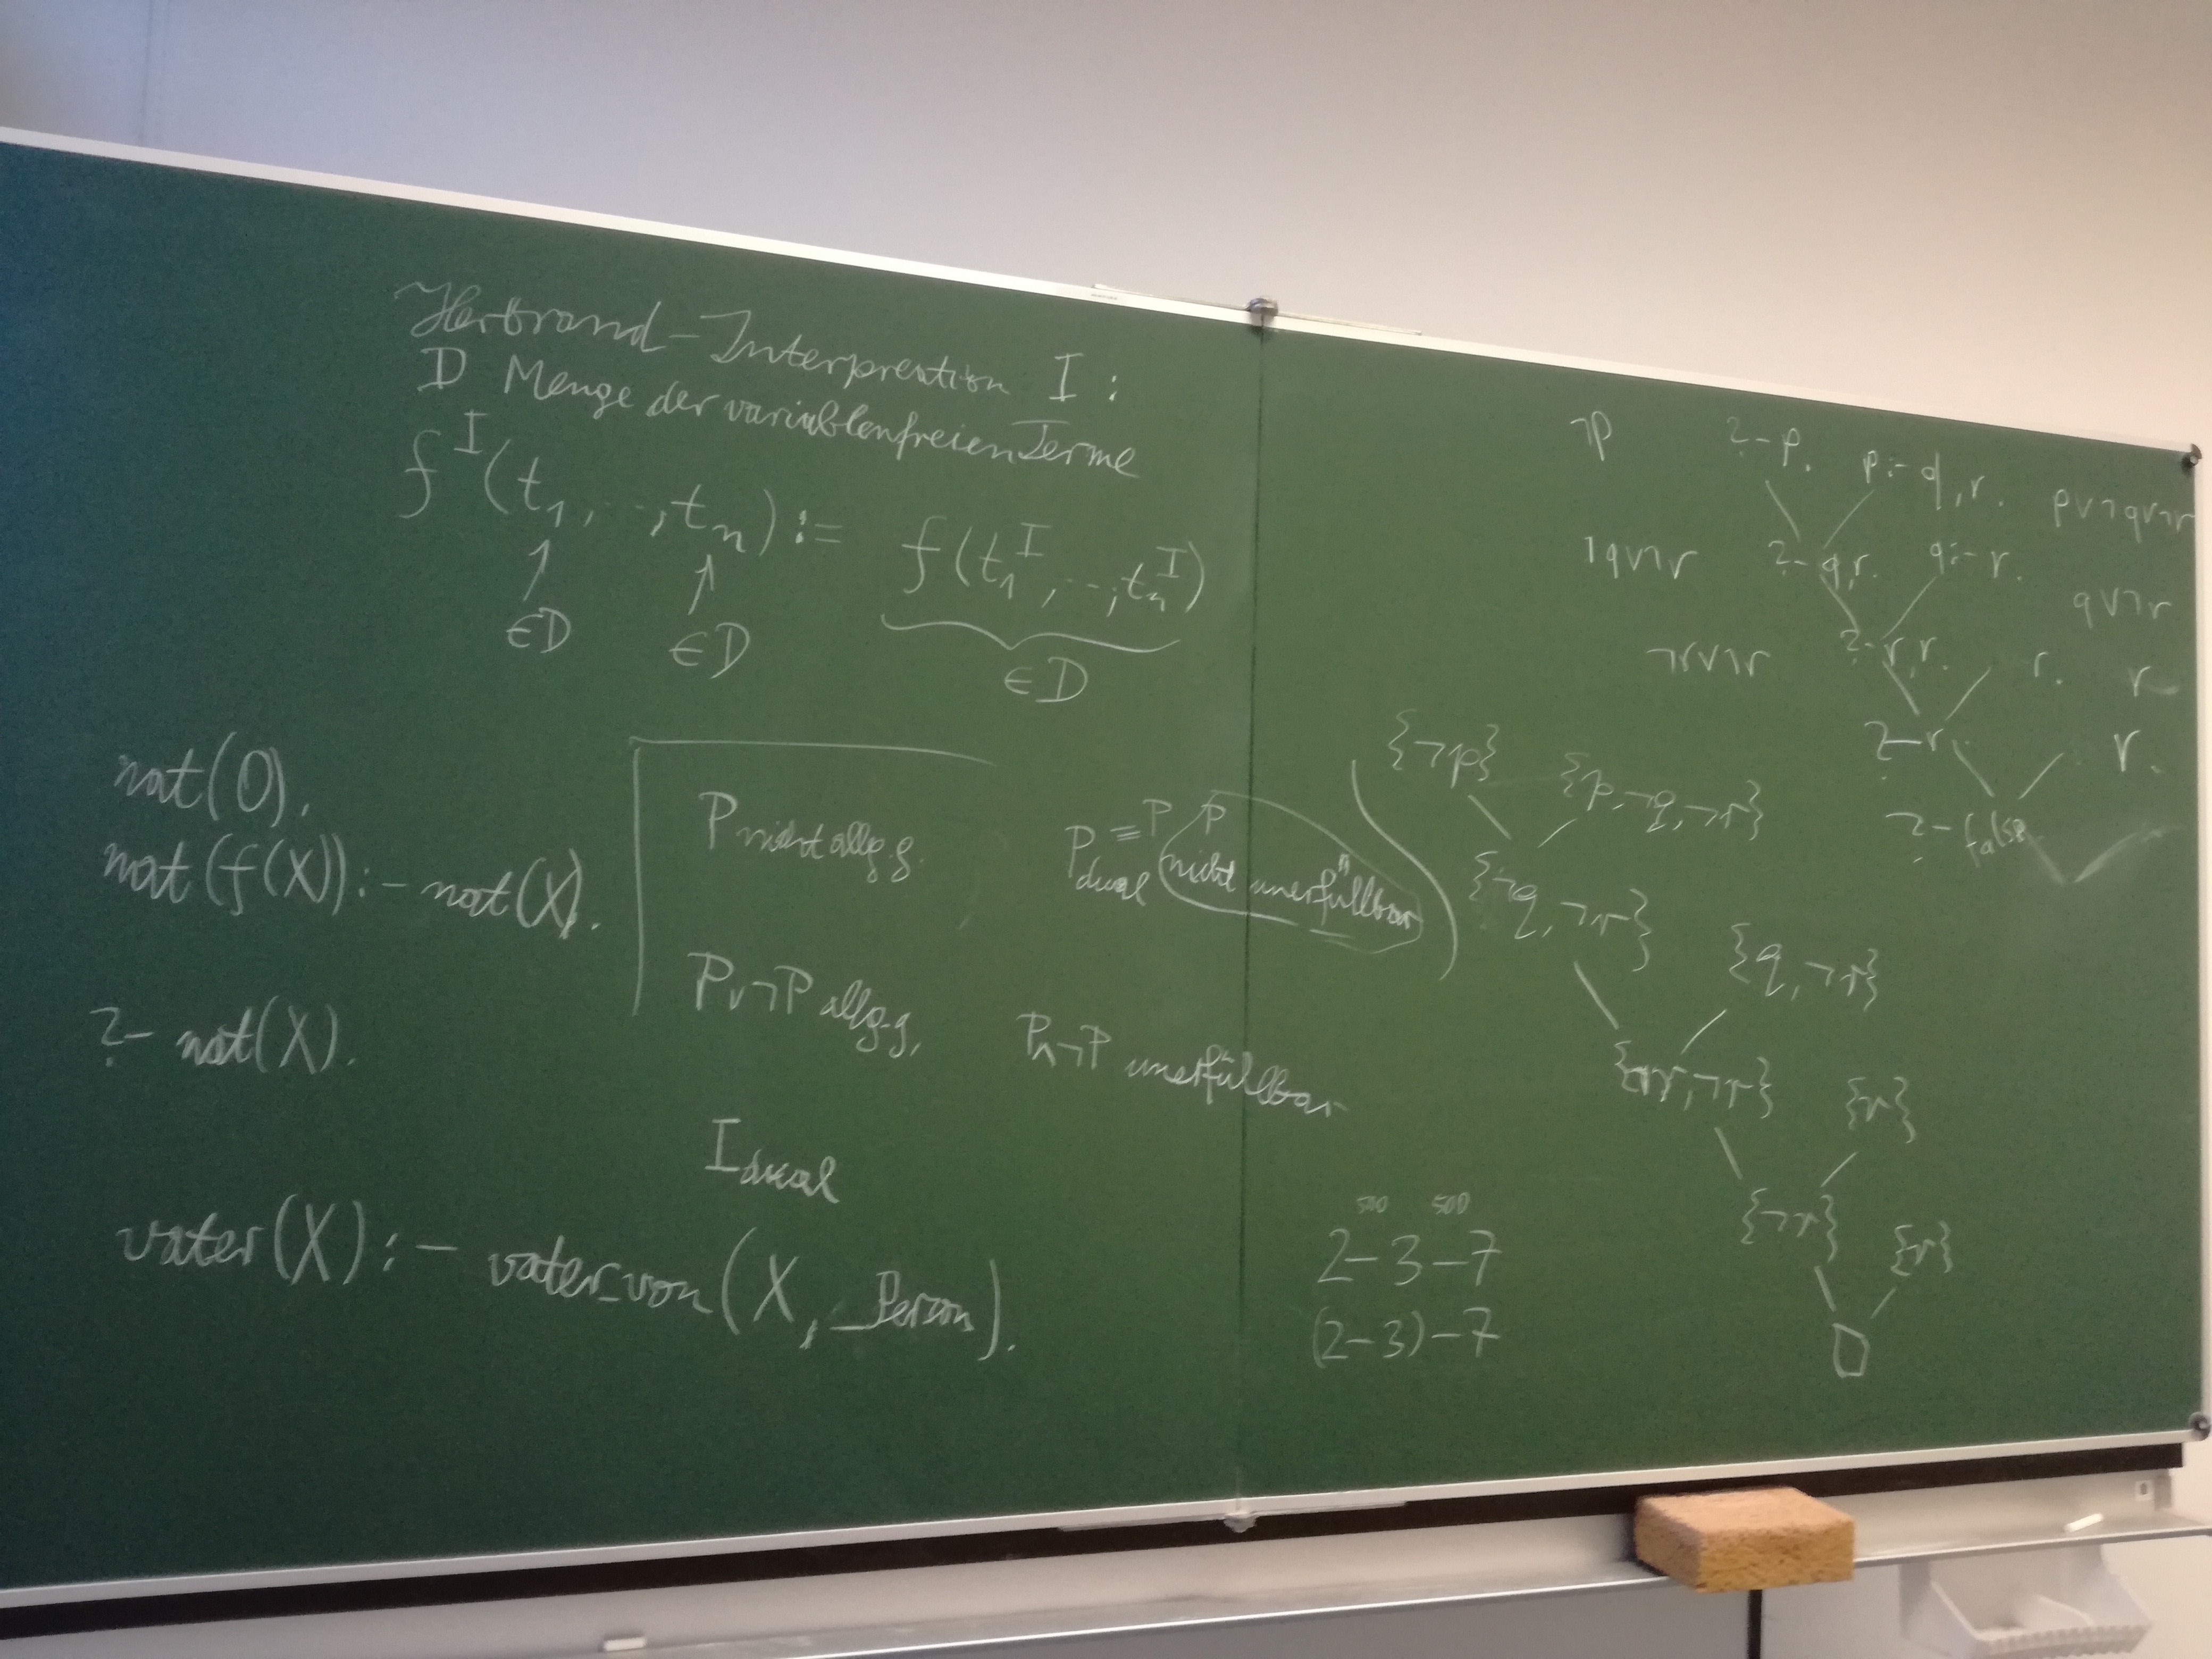 Herbrand-Interpretation I :
D Menge der variablenfreien Terme
f^I(t₁, .., tₙ) := f(t₁^I, .., tₙ^I)
∈D ∈D ∈D
nat(0).
nat(f(X)) :- nat(X).
?- nat(X).
P nicht allg.g.
P_dual ≡ P P
nicht unerfüllbar
P∨¬P allg.g.
P∧¬P unerfüllbar
I_dual
vater(X) :- vater_von(X, _Person).
500 500
2-3-7
(2-3)-7
¬p ?-p. p:-q,r. p∨¬q∨¬r
¬q∨¬r ?-q,r. q:-r. q∨¬r
¬r∨¬r ?-r,r. r. r
?-r. r.
?-false
{¬p} {p,¬q,¬r}
{¬q,¬r} {q,¬r}
{¬r,¬r} {r}
{¬r} {r}
□